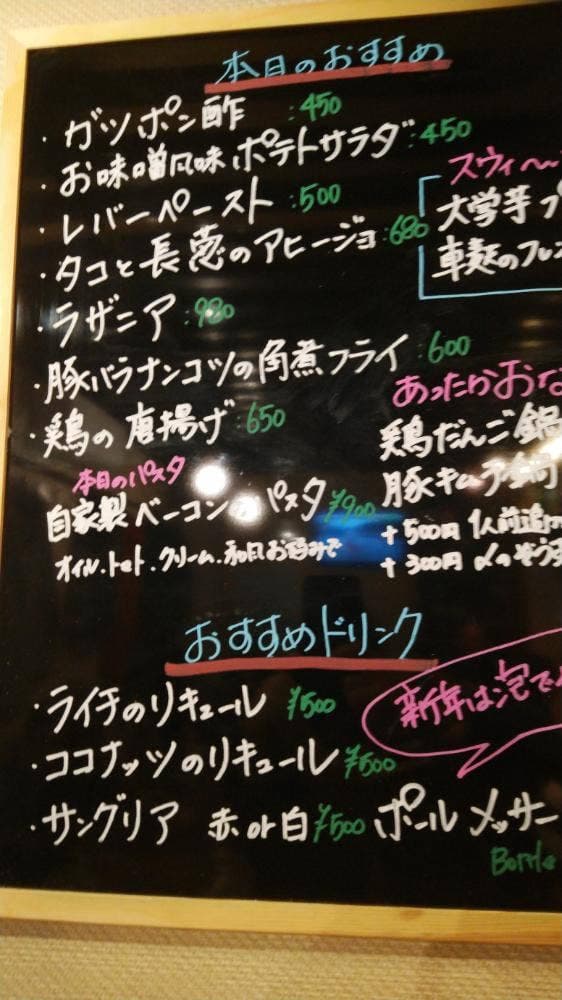 本日のおすすめ
・ガツポン酢 :450
・お味噌風味ポテトサラダ :450
・レバーペースト :500
・タコと長葱のアヒージョ :680
・ラザニア :980
・豚バラナンコツの角煮フライ :600
・鶏の唐揚げ :650
本日のパスタ
自家製ベーコンのパスタ ¥900
オイル.トマト.クリーム.和風お好みで
スウィ〜
大学芋
車麩のフレン
あったかおな
鶏だんご鍋
豚キムチ鍋
+500円 1人前追
+300円 〆のぞう
おすすめドリンク
・ライチのリキュール ¥500
・ココナッツのリキュール ¥500
・サングリア 赤or白 ¥500
新年は泡で
ポールメッサー
Bottle